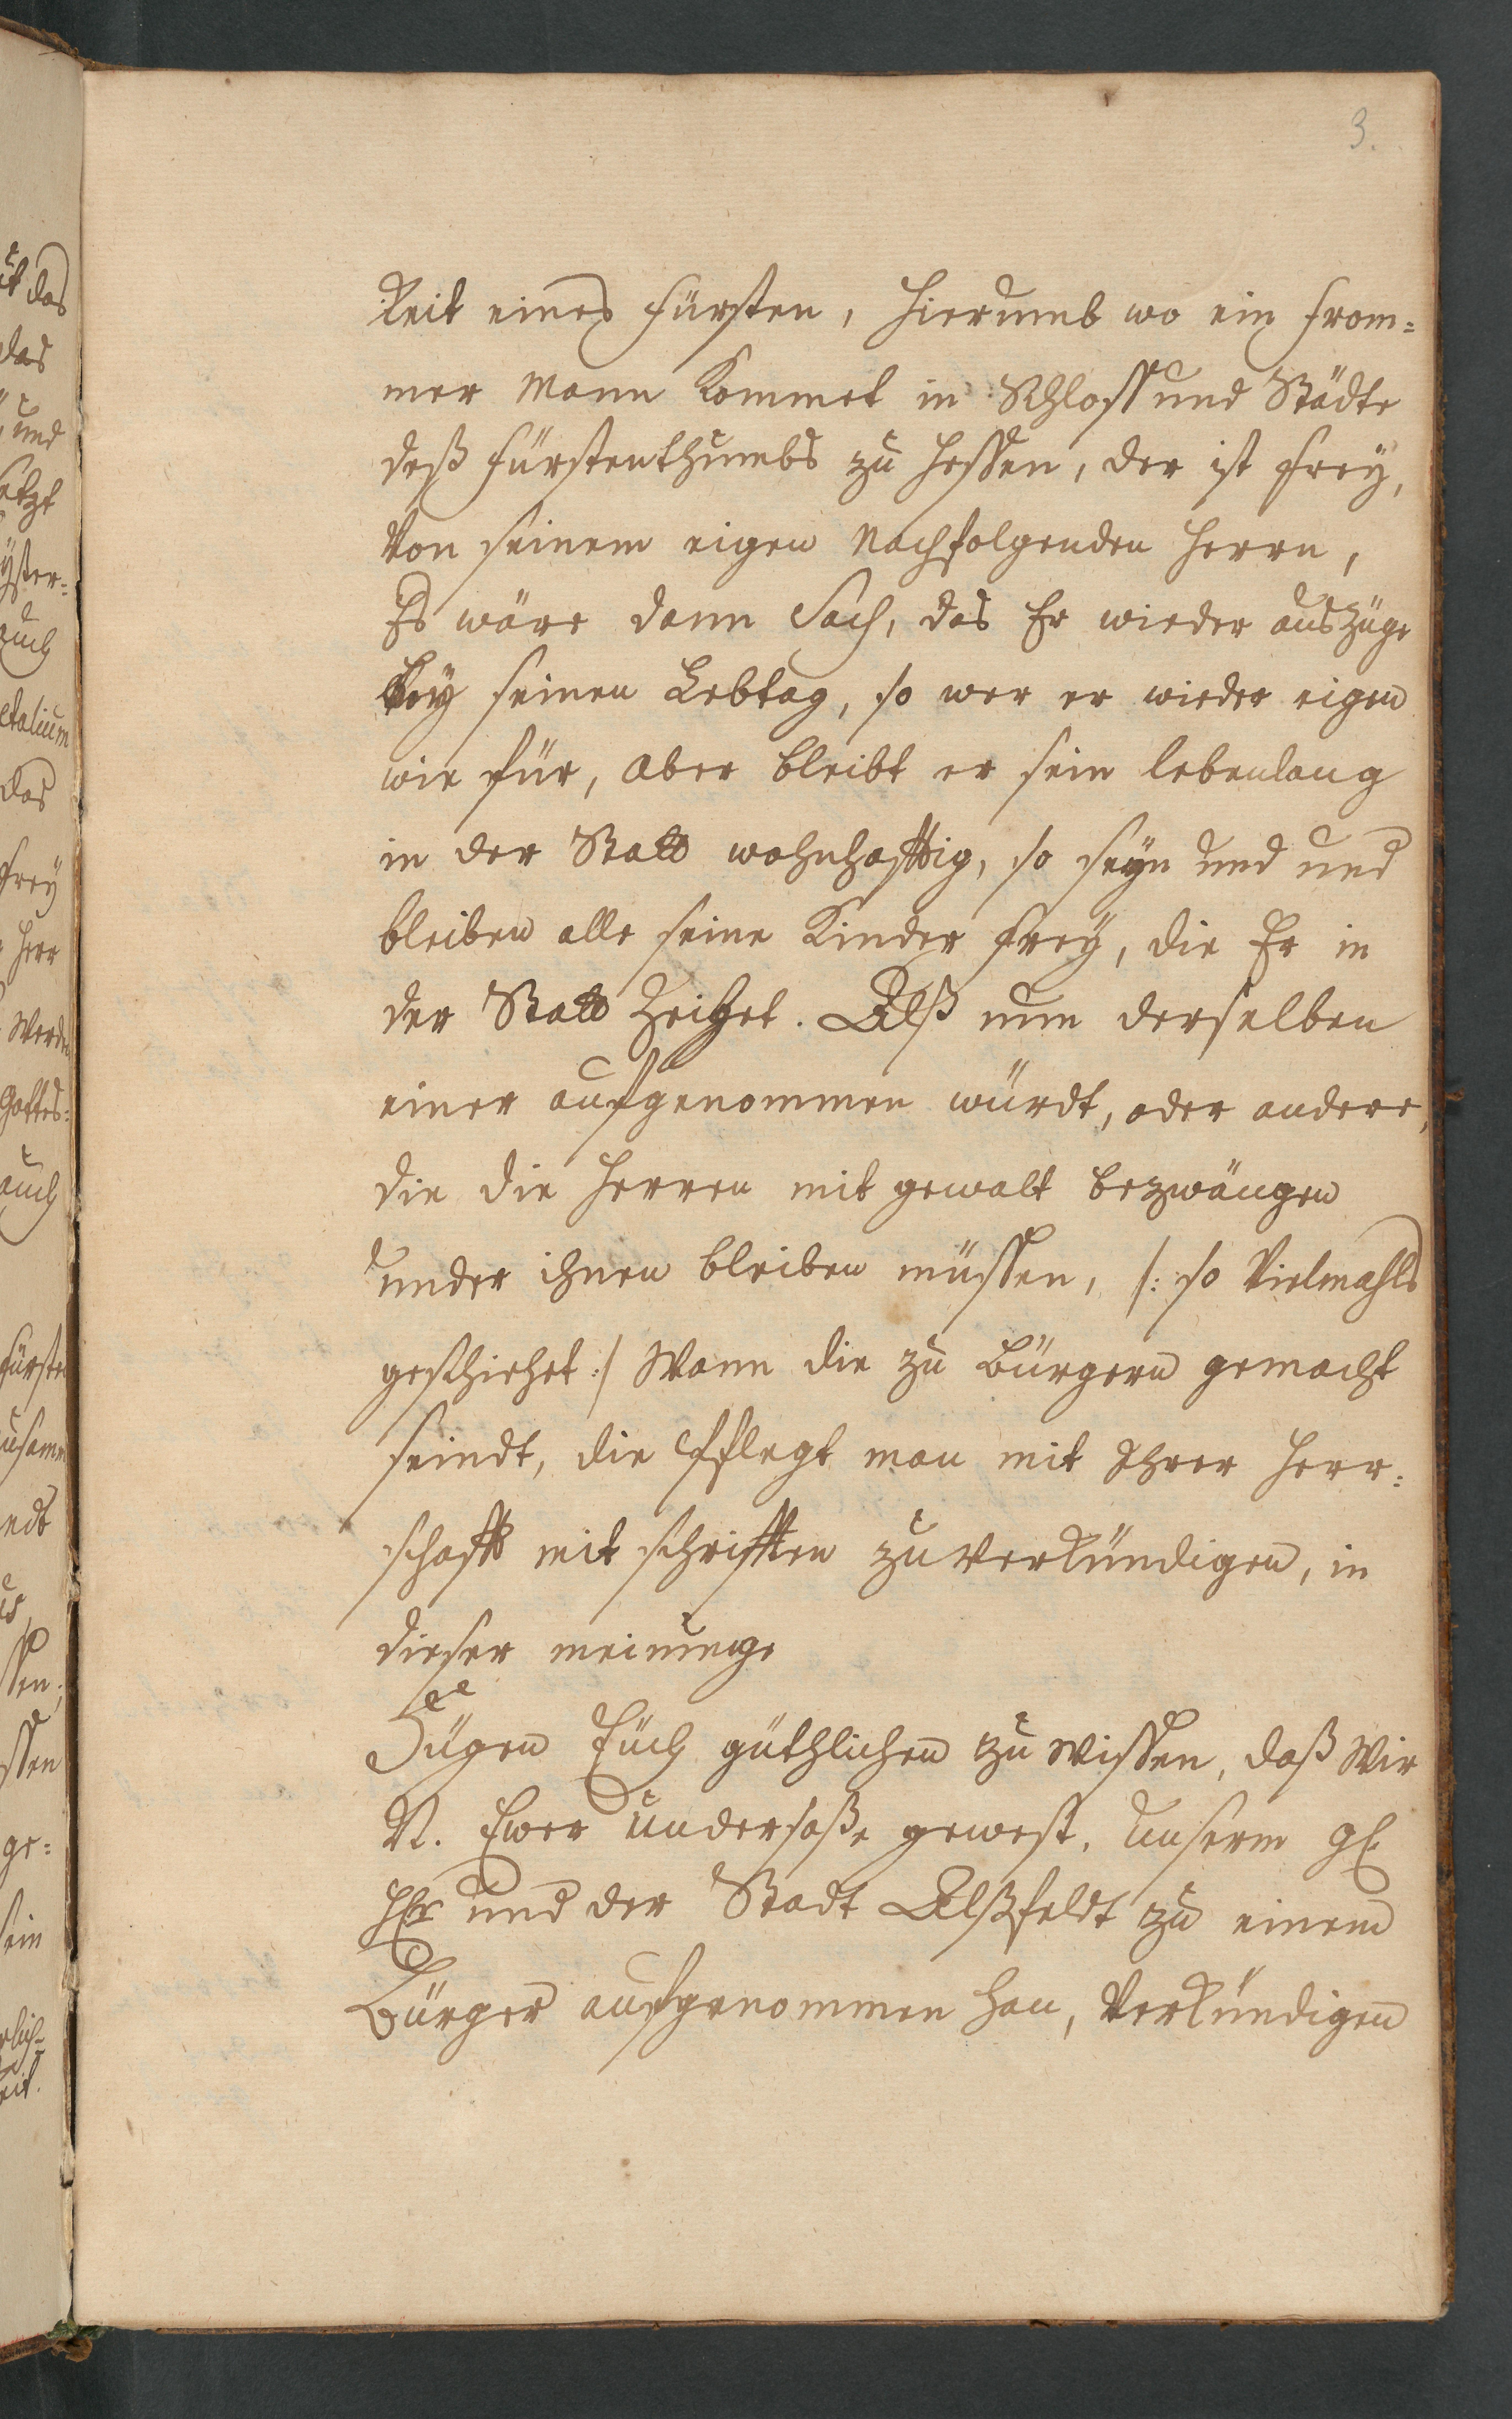 3.
keit eines Fürsten, Hierumb wo ein From=
mer Mann Kommet in Schloss und Städte
deß Fürstenthumbs zu Hessen, der ist Frey,
Von seinem eigen Nachfolgenden Herrn,
Es wäre dann Sach, das Er wieder auszüge
bey seinen Lebtag, so wer er wieder eigen
wie für, aber bleibt er sein lebenlang
in der Statt wohnhafftig, so seyn und und
bleiben alle seine Kinder Frey, die Er in
der Statt Zeihet. Alß nun derselben
einer aufgenommen würdt, oder andere,
die die Herren mit gewalt bezwängen
under ihnen bleiben müssen, /: so Vielmahls
geschiehet :/ Wann die zu Bürgern gemacht
seindt, die Pflegt man mit Ihrer Herr=
schafft mit schrifften zu verkündigen, in
dieser meinunge
Fügen Euch güthlichen zu Wissen, daß Wir
N. Ewer Undersaße gewest, Unserm gl.
Hr und der Stadt Alßfeldt zu einem
Bürger aufgenommen han, Verkündigen